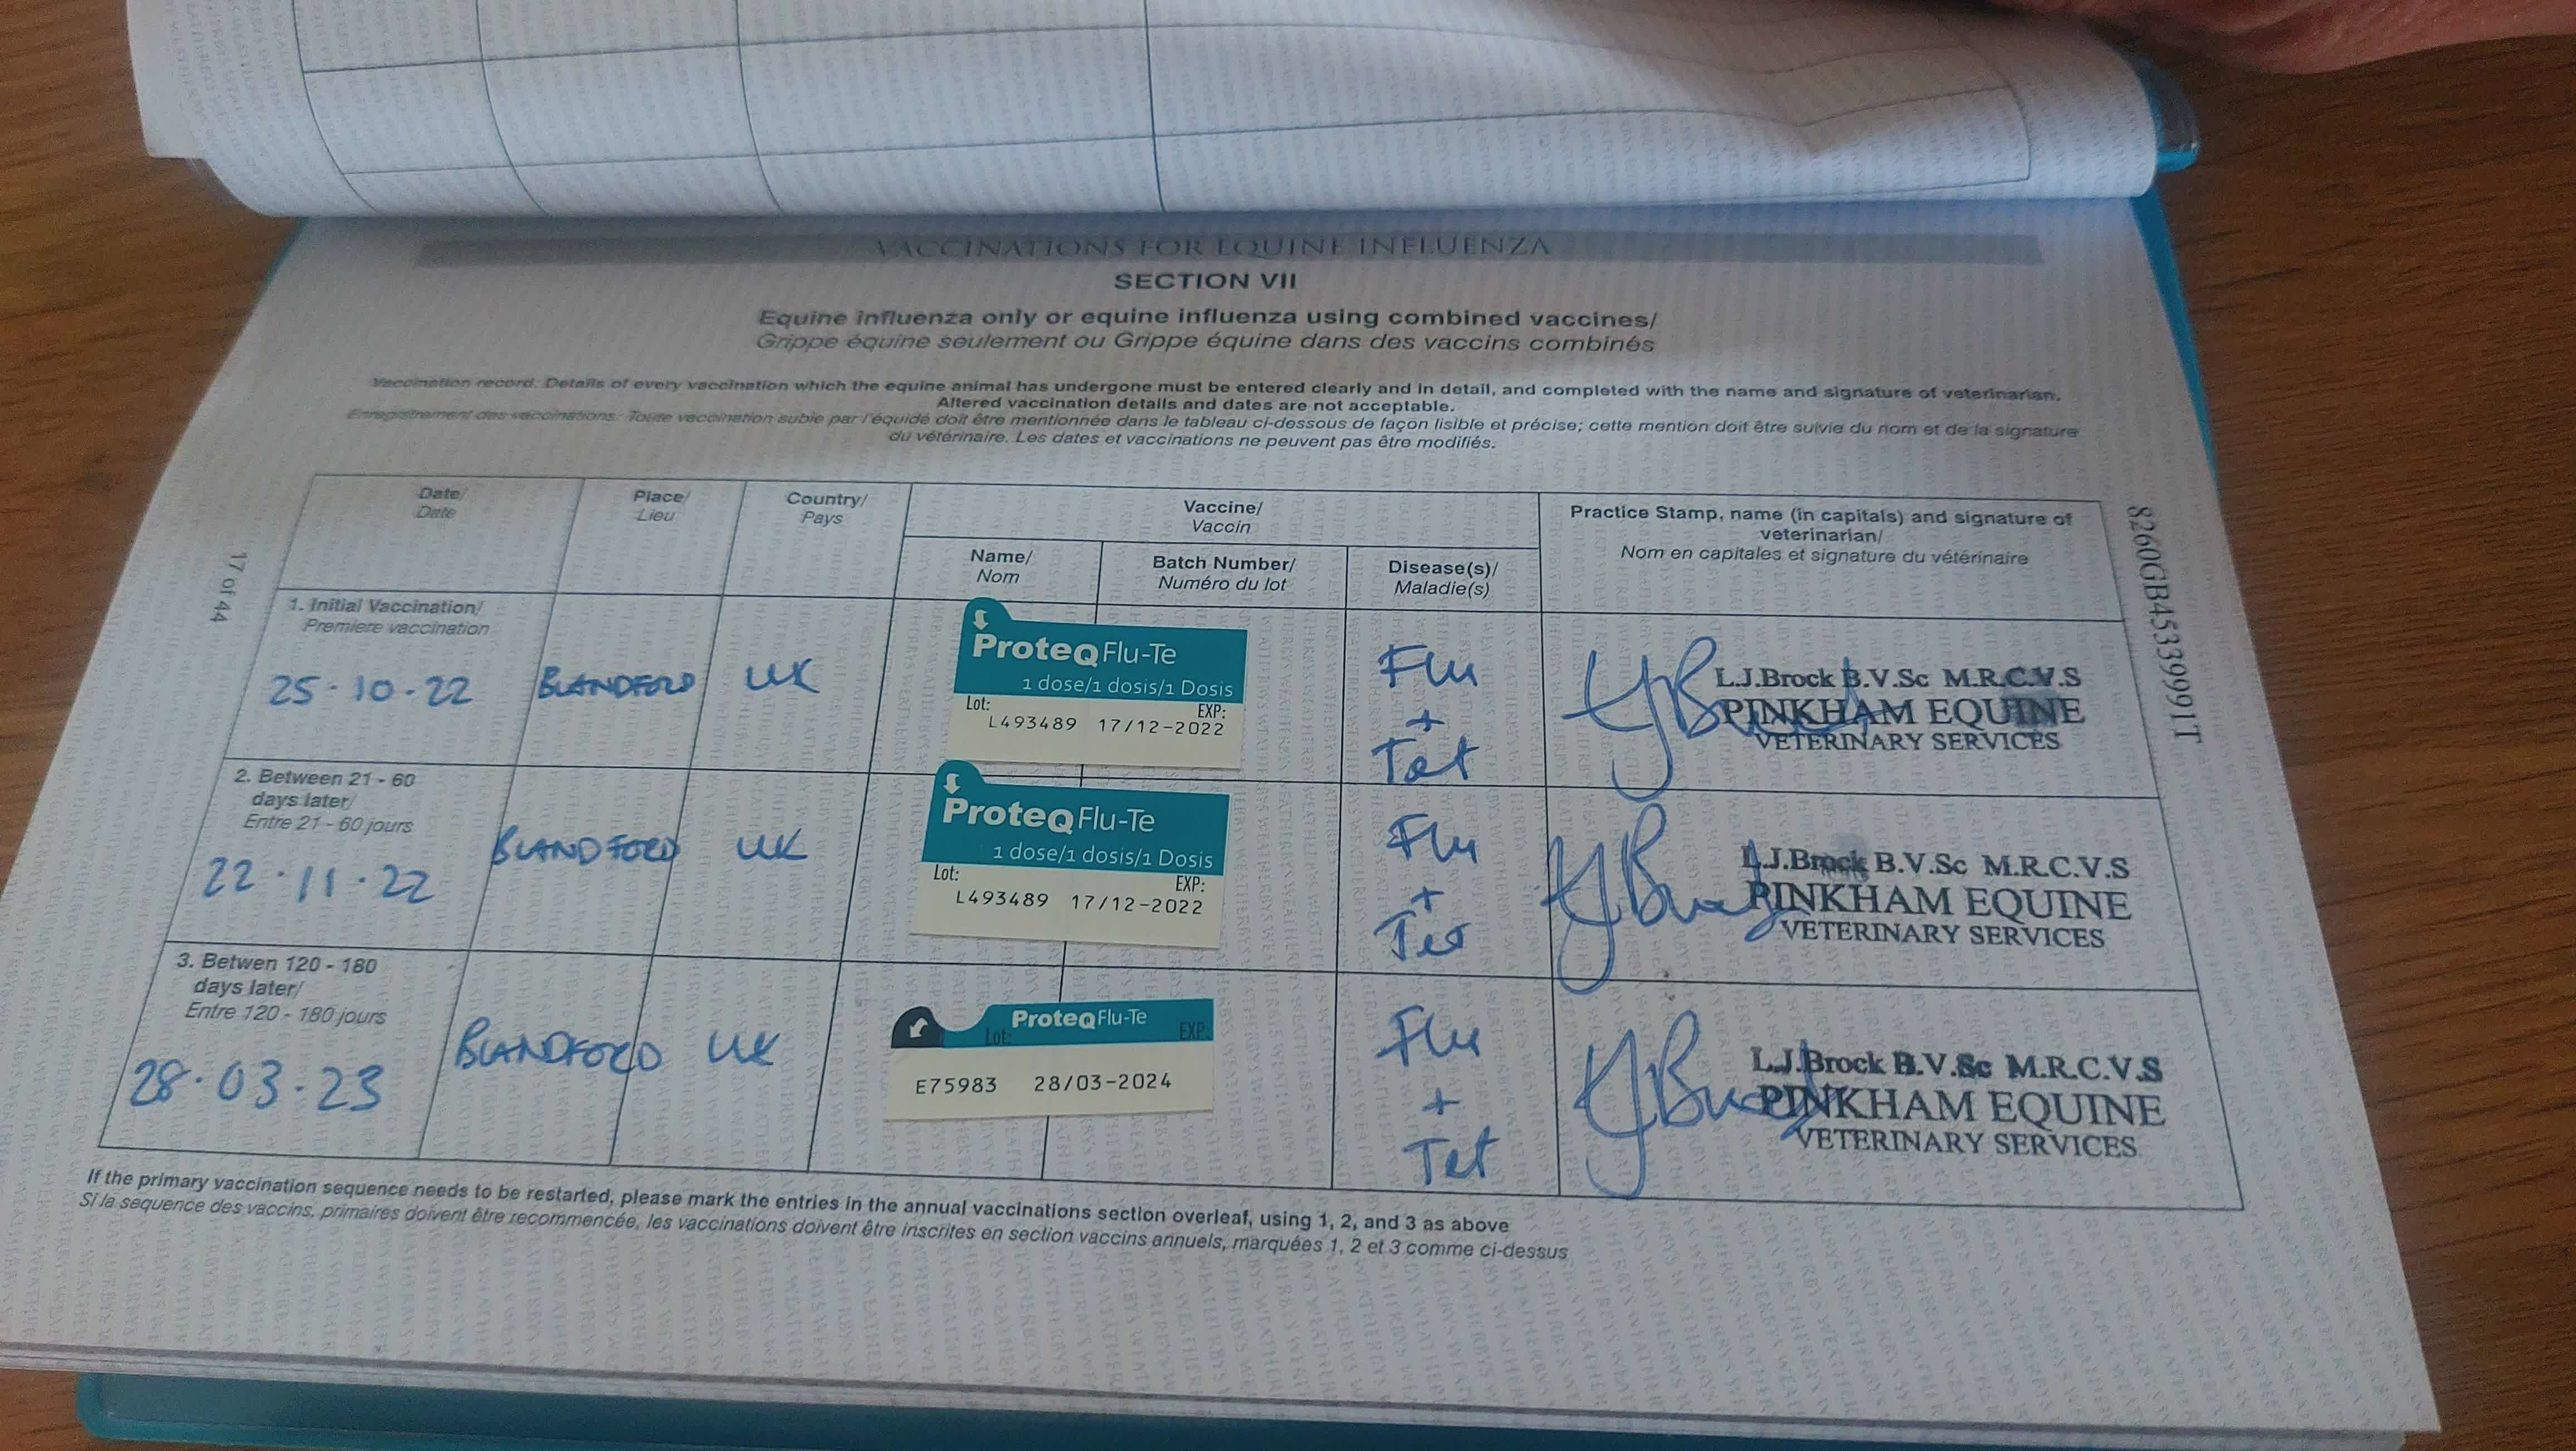 VACCINATIONS FOR EQUINE INFLUENZA
SECTION VII
Equine influenza only or equine influenza using combined vaccines/
Grippe équine seulement ou Grippe équine dans des vaccins combinés
Vaccination record: Details of every vaccination which the equine animal has undergone must be entered clearly and in detail, and completed with the name and signature of veterinarian.
Altered vaccination details and dates are not acceptable.
Enregistrement des vaccinations: Toute vaccination subie par l'équidé doit être mentionnée dans le tableau ci-dessous de façon lisible et précise; cette mention doit être suivie du nom et de la signature
du vétérinaire. Les dates et vaccinations ne peuvent pas être modifiés.
Date/
Date
Place/
Lieu
Country/
Pays
Vaccine/
Vaccin
Name/
Nom
Batch Number/
Numéro du lot
Disease(s)/
Maladie(s)
Practice Stamp, name (in capitals) and signature of
veterinarian/
Nom en capitales et signature du vétérinaire
1. Initial Vaccination/
Premiere vaccination
25.10.22
BLANDFORD
UK
ProteqFlu-Te
1 dose/1 dosis/1 Dosis
Lot: EXP:
L493489 17/12-2022
Flu
+
Tet
L.J.Brock B.V.Sc M.R.C.V.S
PINKHAM EQUINE
VETERINARY SERVICES
2. Between 21 - 60
days later/
Entre 21 - 60 jours
22.11.22
BLANDFORD
UK
ProteqFlu-Te
1 dose/1 dosis/1 Dosis
Lot: EXP:
L493489 17/12-2022
Flu
+
Tet
L.J.Brock B.V.Sc M.R.C.V.S
PINKHAM EQUINE
VETERINARY SERVICES
3. Betwen 120 - 180
days later/
Entre 120 - 180 jours
28.03.23
BLANDFORD
UK
ProteqFlu-Te
Lot: EXP:
E75983 28/03-2024
Flu
+
Tet
L.J.Brock B.V.Sc M.R.C.V.S
PINKHAM EQUINE
VETERINARY SERVICES
If the primary vaccination sequence needs to be restarted, please mark the entries in the annual vaccinations section overleaf, using 1, 2, and 3 as above
Si la sequence des vaccins, primaires doivent être recommencée, les vaccinations doivent être inscrites en section vaccins annuels, marquées 1, 2 et 3 comme ci-dessus
17 of 44